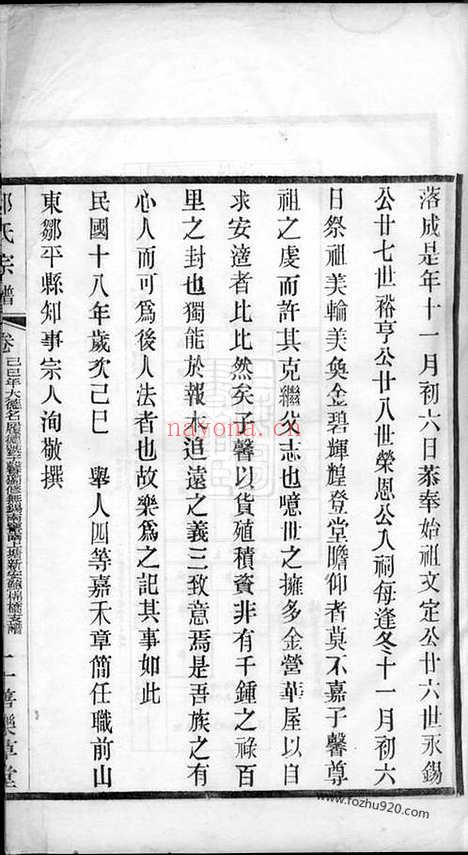 落成是年十一月初六日恭奉始祖文定公廿六世永錫
公廿七世裕亨公廿八世榮恩公入祠每逢冬十一月初六
日祭祖美輪美奐金碧輝煌登堂瞻仰者莫不嘉子馨尊
祖之虔而許其克繼父志也噫世之擁多金營華屋以自
求安適者比比然矣子馨以貨殖積資非有千鍾之祿百
里之封也獨能於報本追遠之義三致意焉是吾族之有
心人而可為後人法者也故樂為之記其事如此
民國十八年歲次己巳　舉人四等嘉禾章簡任職前山
東鄒平縣知事宗人洵敬撰
氏宗譜
卷
己巳年大德名履德號子馨獨修無錫南望亭上塘新安
支譜
樂
堂
nayona.cn
www.fozhu920.com